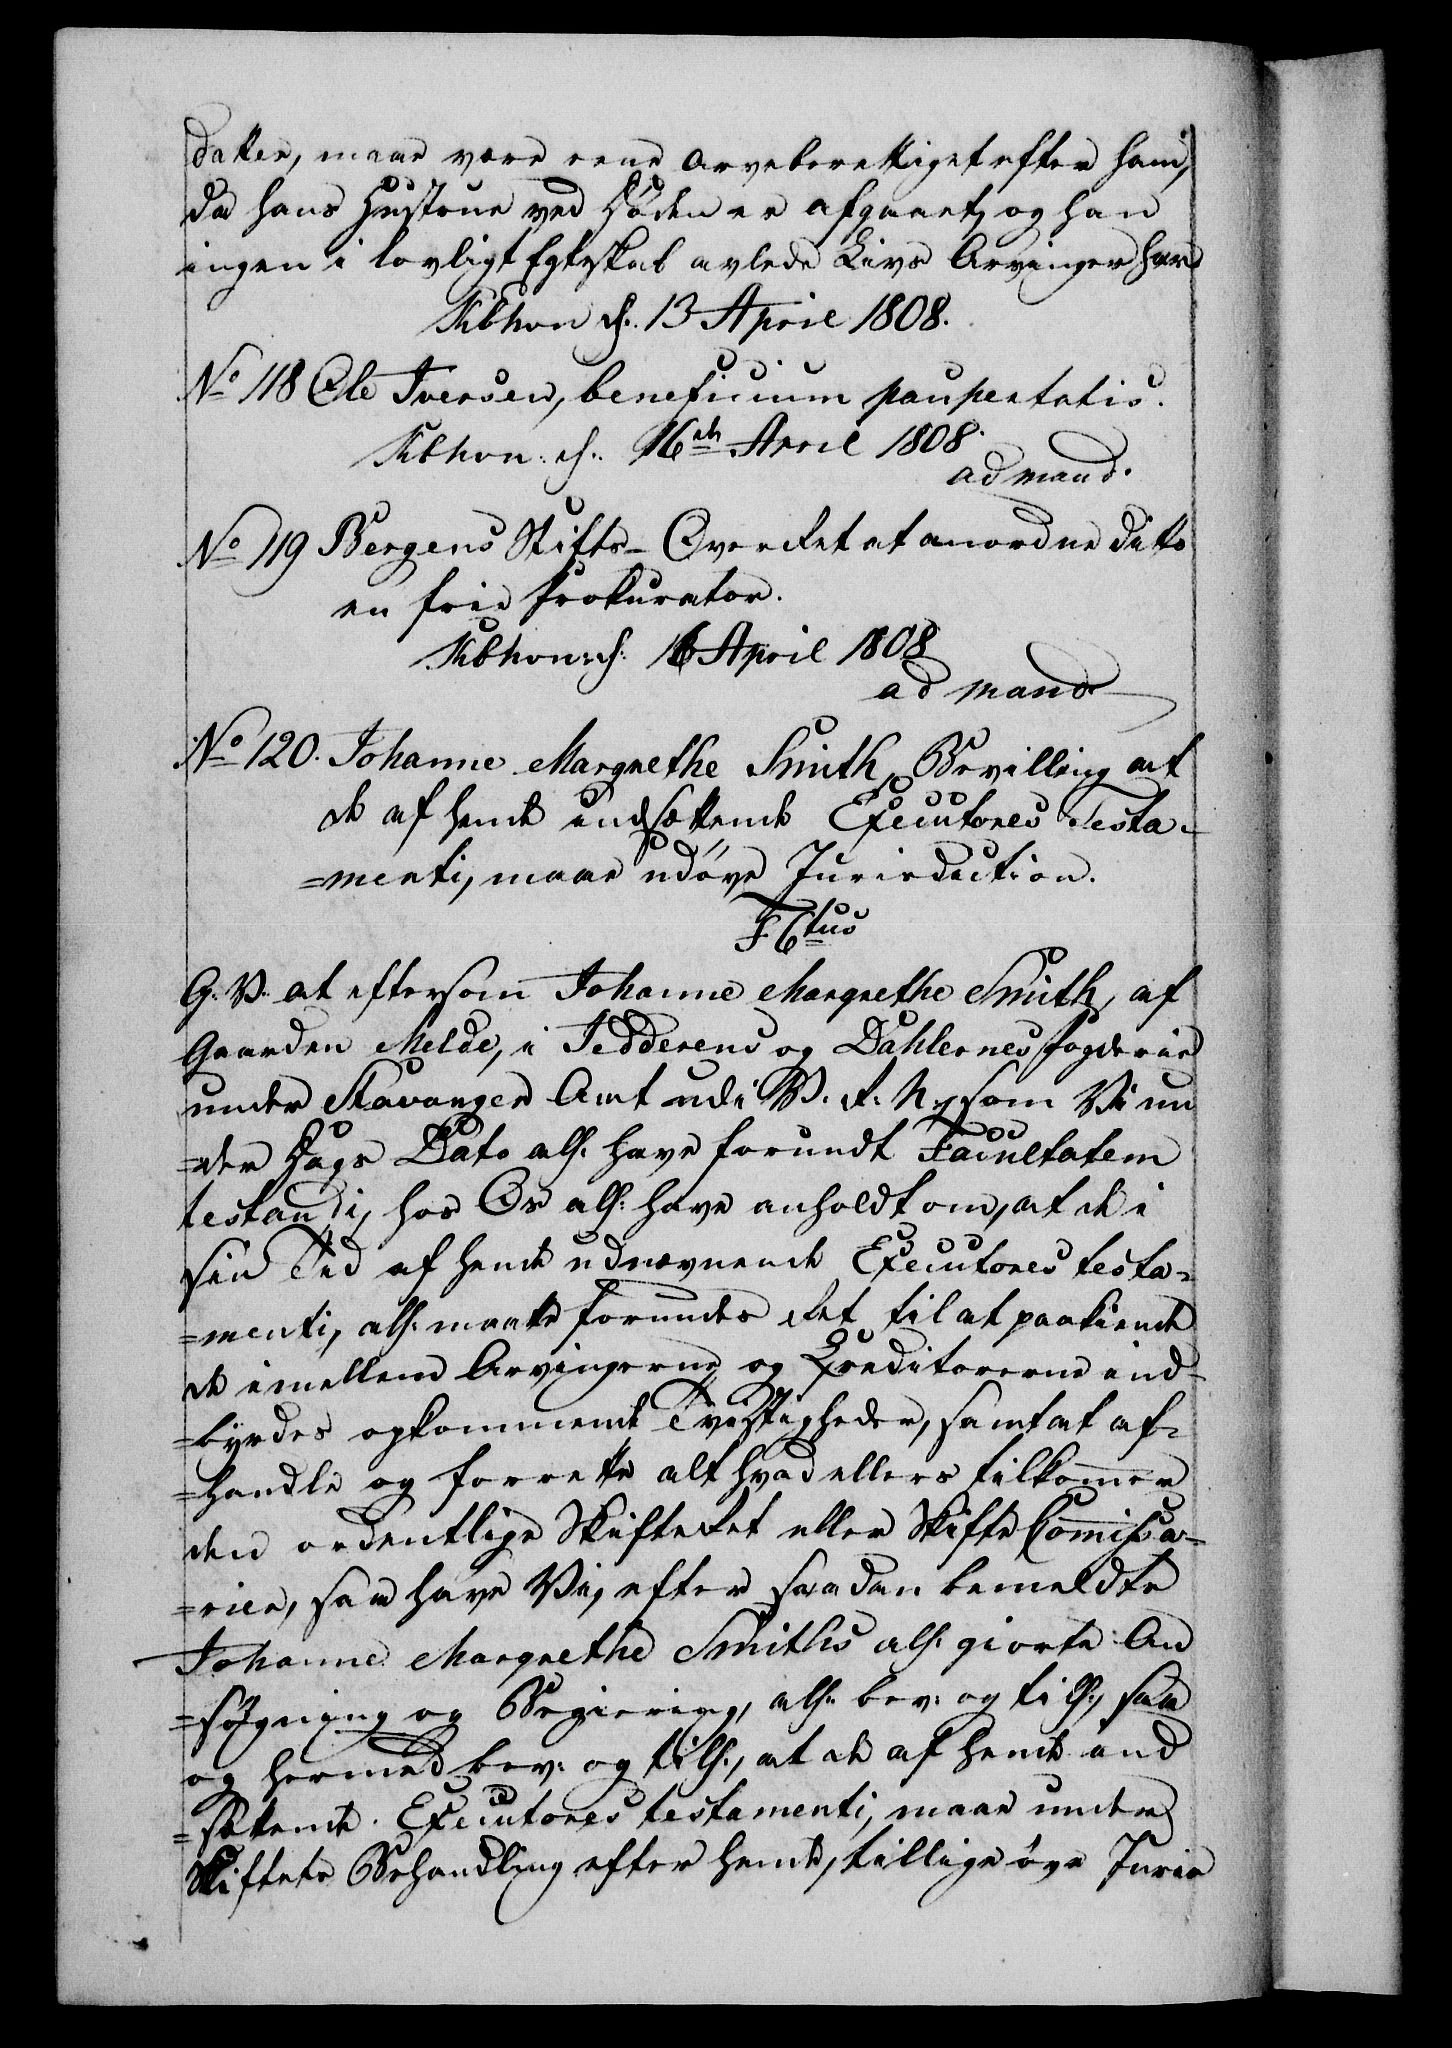 datter, maae være eene arveberettiget efter ham,
da hans Hustrue ved Døden er afgaaet, og han
ingen i lovligt Egteskab avlede Livs Arvinger har
Kbhvn d: 13 April 1808.
No 118 Ole Iversen, beneficium paupertatis.
Kbhvn: d: 16de April 1808.
ad mand:
No 119 Bergens Stifts-Overret at anordne ditto
en frie Prokurator.
Kbhvn: d: 16 April 1808
ad mand
No 120. Johanne Margrethe Smith, Bevilling at
de af hende indsættende Executores Testa=
=menti, maae udøve Jurisdiction.
F. 6tus
G. V. at eftersom Johanne Margrethe Smith, af
Gaarden Melde, i Jedderens og Dahlernes Fogderie
under Stavanger Amt udi V. R. N., som Vi un
=der Dags Dato all: have forundt Facultatem
testandi, hos Os all: have anholdt om, at de i
sin Tid af hende udnævnende Executores testa=
=menti, all: maatte forundes Ret til at paakiende
de imellem Arvingerne og Creditorerne ind=
=byrdes opkommende Tvistigheder, samt at af=
=handle og forrette alt hvad ellers tilkommer
den ordentlige Skifteret eller Skifte Commissa=
=rier, saa have Vi, efter saadan bemeldte
Johanne Margrethe Smiths all: giorte An
=søgning og Begiering, all: bev: og till:, saa
og hermed bev: og till:, at de af hende ind
=sættende Executores testamenti, maae under
Skiftets Behandling efter hende, tillige øve Juris